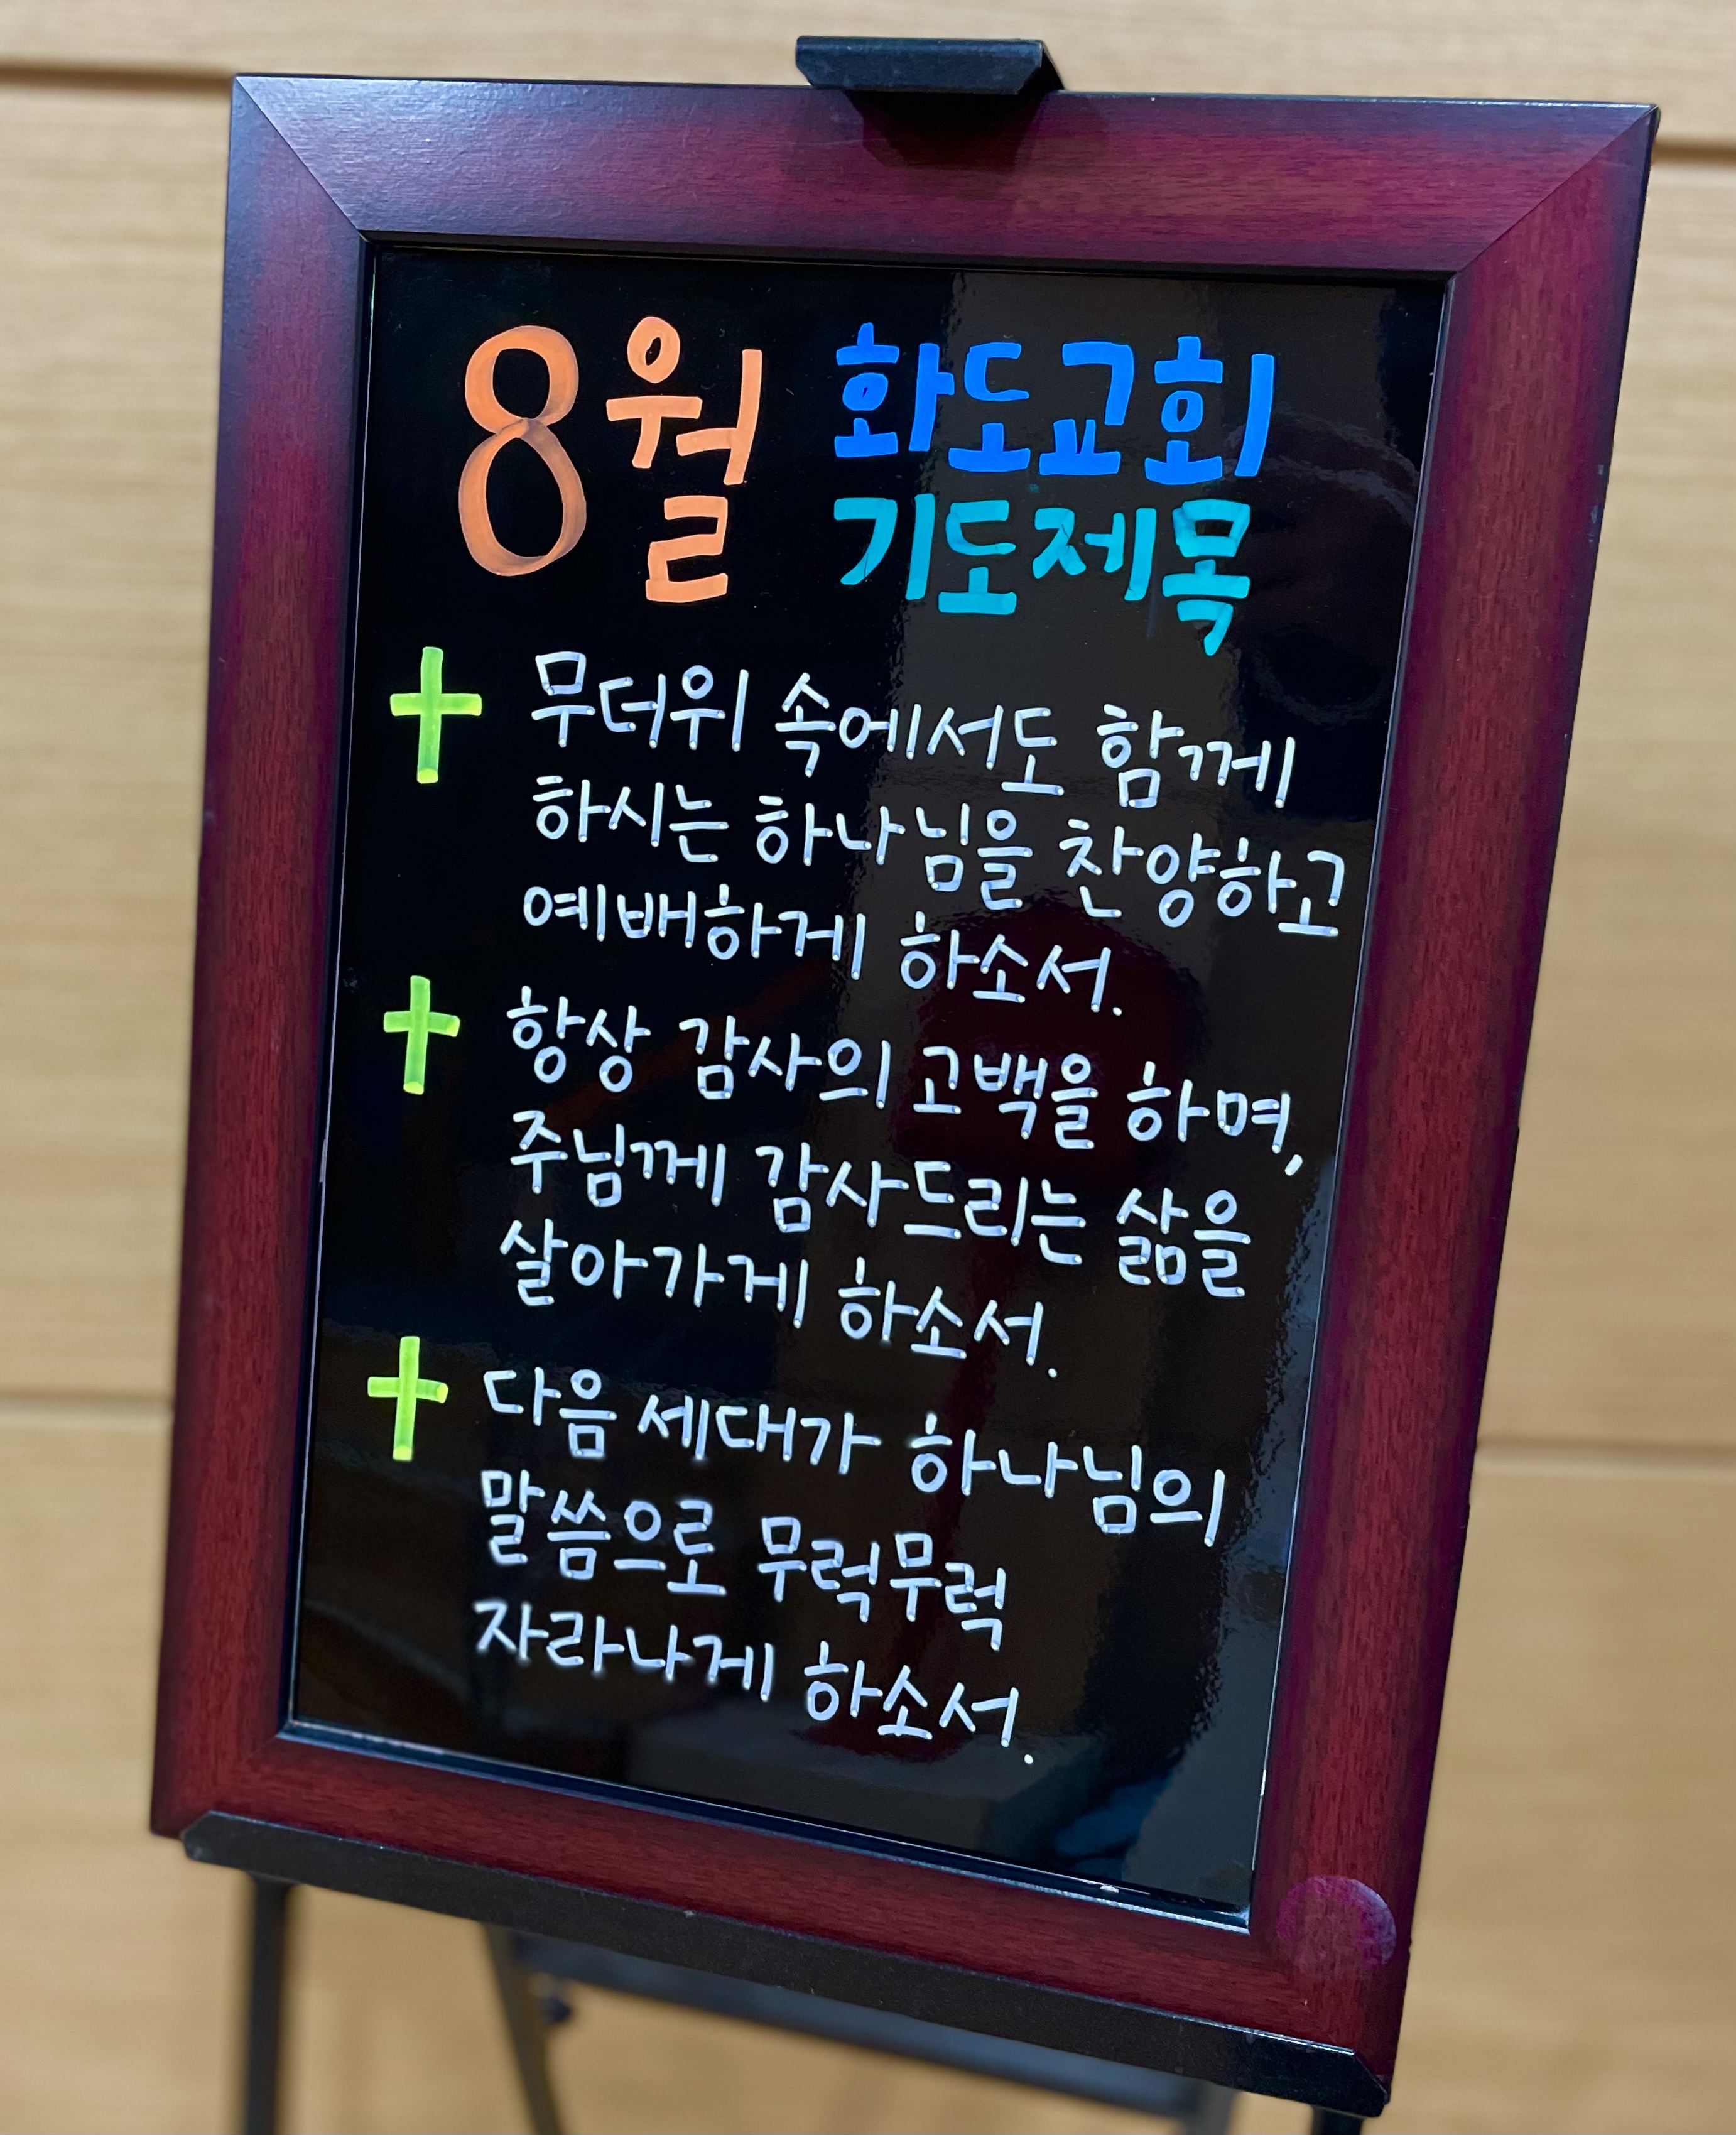 8월 화도교회
기도제목
✝ 무더위 속에서도 함께
하시는 하나님을 찬양하고
예배하게 하소서.
✝ 항상 감사의 고백을 하며,
주님께 감사드리는 삶을
살아가게 하소서.
✝ 다음 세대가 하나님의
말씀으로 무럭무럭
자라나게 하소서.